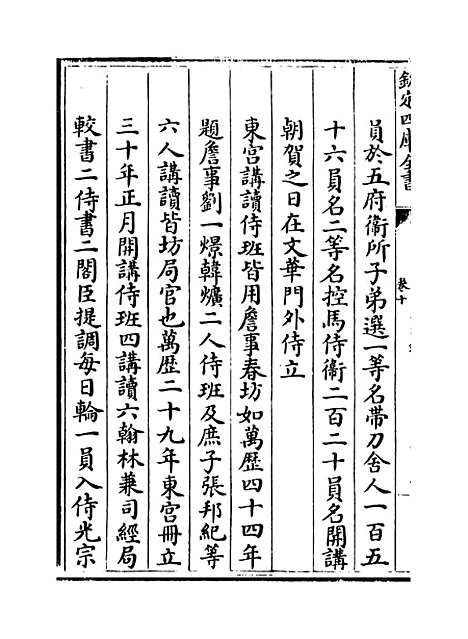 欽定四庫全書
卷十
員於五府衞所子弟選一等名帶刀舍人一百五
十六員名二等名控馬侍衞二百二十員名開講
朝賀之日在文華門外侍立
東宮講讀侍班皆用詹事春坊如萬歷四十四年
題詹事劉一燝韓爌二人侍班及庶子張邦紀等
六人講讀皆坊局官也萬歷二十九年東宮冊立
三十年正月開講侍班四講讀六翰林兼司經局
較書二侍書二閣臣提調每日輪一員入侍光宗